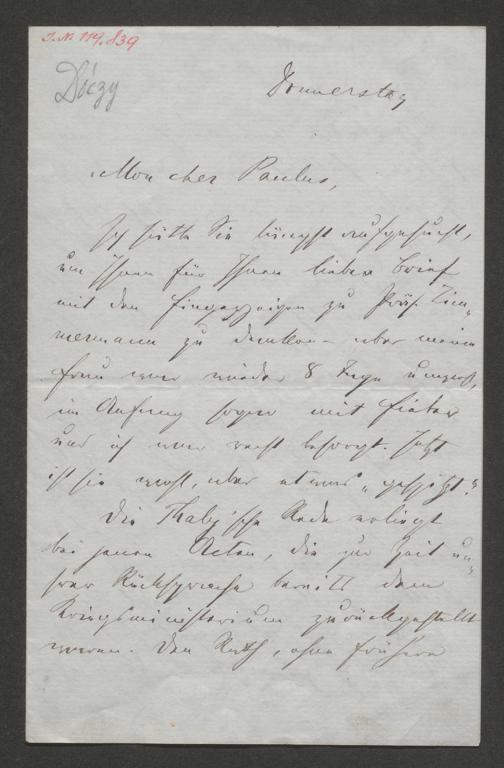 I. N. 119.839
Dóczy
Donnerstag
Mon cher Paulus,
Ich hätte Sie längst aufgesucht,
um Ihnen für Ihren lieben Brief
mit den Fingerzeigen zu Prof. Zim„
mermann zu danken – aber meine
Frau war wieder 8 Tage unwohl,
im Anfang sogar mit Fieber
und ich war recht besorgt. Jetzt
ist sie wohl, aber etwas „
Die Thaly'sche Rede erliegt
bei jenen Acten, die zur Zeit un„
srer Rücksprache bereits dem
Kriegsministerium zurückgestellt
waren. Den Rath, ohne frühere